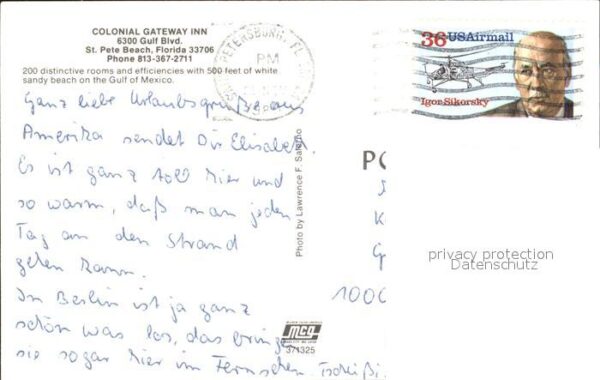 COLONIAL GATEWAY INN
6300 Gulf Blvd.
St. Pete Beach, Florida 33706
Phone 813-367-2711
200 distinctive rooms and efficiencies with 500 feet of white
sandy beach on the Gulf of Mexico.
Ganz liebe Urlaubsgrüße aus
Amerika sendet Dir Elisabeth.
Es ist ganz toll hier und
so warm, daß man jeden
Tag an den Strand
gehen kann.
In Berlin ist ja ganz
schön was los, das bringen
sie sogar hier im Fernsehen. Tschüßi
Photo by Lawrence F.
PETERSBURG, FL
PM
36 USAirmail
Igor Sikorsky
PO
K
G
1000
privacy protection
Datenschutz
mcg
371325